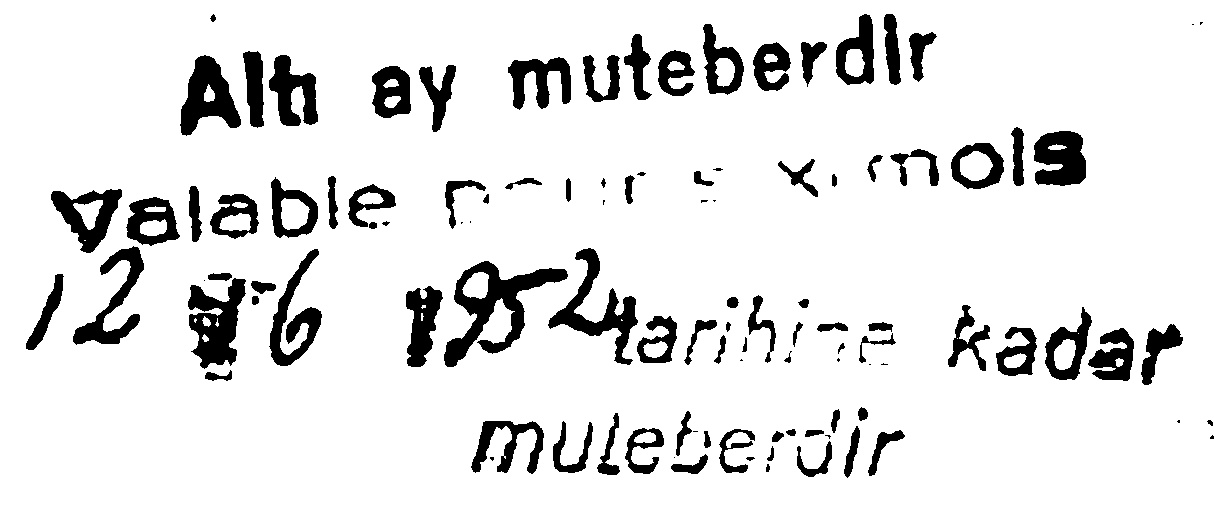 Altı ay muteberdir
Valable pour six mois
12 6 1952 tarihine kadar
muteberdir